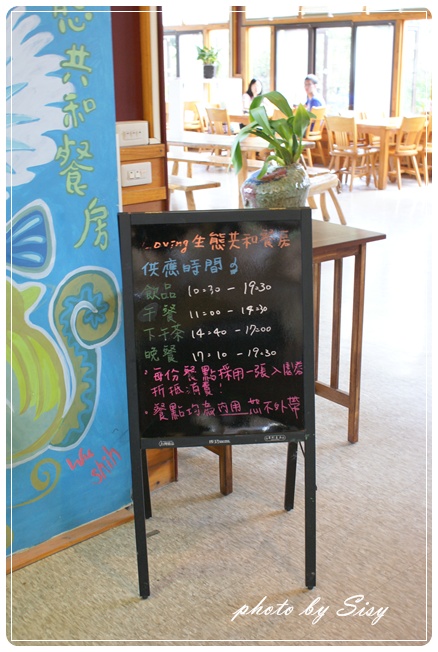 態共和餐房
Loving 生態共和餐房
供應時間
飲品 10:30 - 19:30
午餐 11:00 - 14:30
下午茶 14:40 - 17:00
晚餐 17:10 - 19:30
·每份餐點採用一張入園卷
折抵消費!
·餐點均為內用 恕不外帶
photo by Sisy